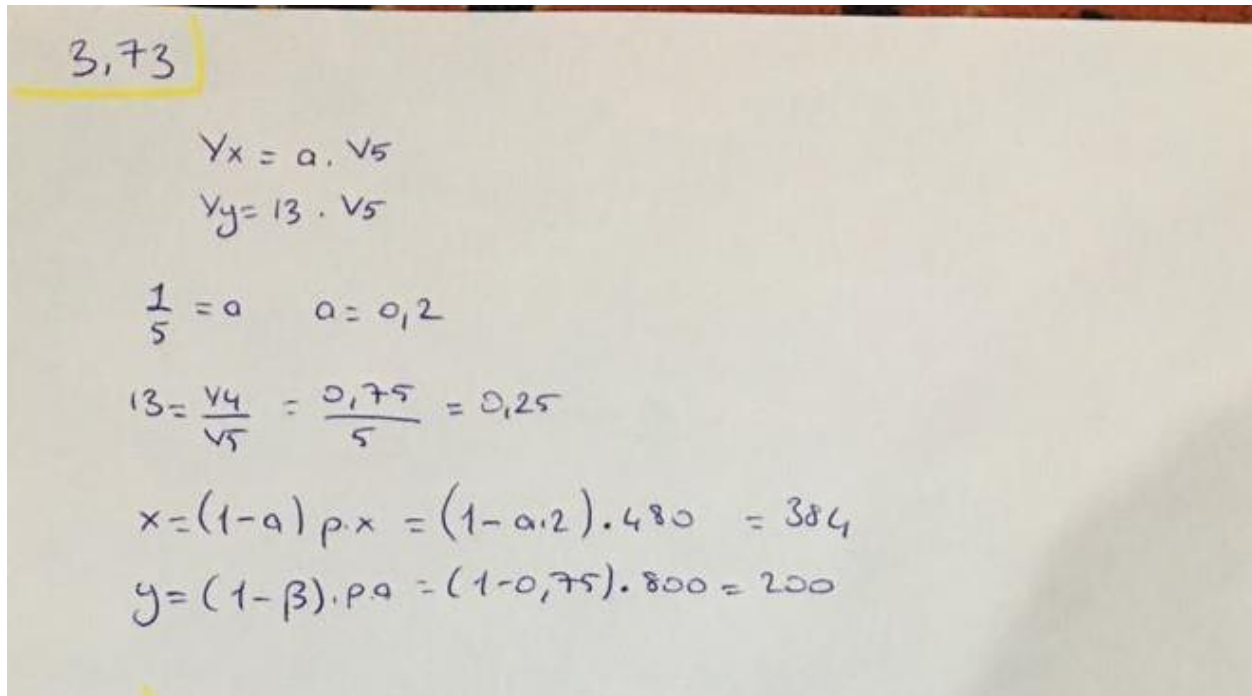 3,73
Yx = a . V5
Yy = 13 . V5
1/5 = a    a = 0,2
13 = V4/V5 = 0,75/5 = 0,25
x = (1-a) p.x = (1-a.2).480 = 384
y = (1-β).p.a = (1-0,75).800 = 200